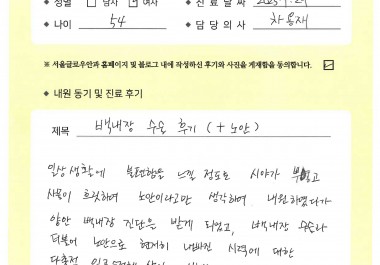 ◆ 성별 □ 남자 ☑ 여자 ◆ 진료날짜
◆ 나이 54 ◆ 담당의사 차흥재
※ 서울글로우안과 홈페이지 및 블로그 내에 작성하신 후기와 사진을 게재함을 동의합니다. ☑
◆ 내원 동기 및 진료 후기
제목 백내장 수술 후기 (+노안)
일상생활에 불편함을 느낄 정도로 시야가 부옇고
사물이 흐릿하여 노안이라고만 생각하여 내원하였다가
양안 백내장 진단을 받게 되었고, 백내장 수술과
더불어 노안으로 현저히 나빠진 시력에 대한
다초점